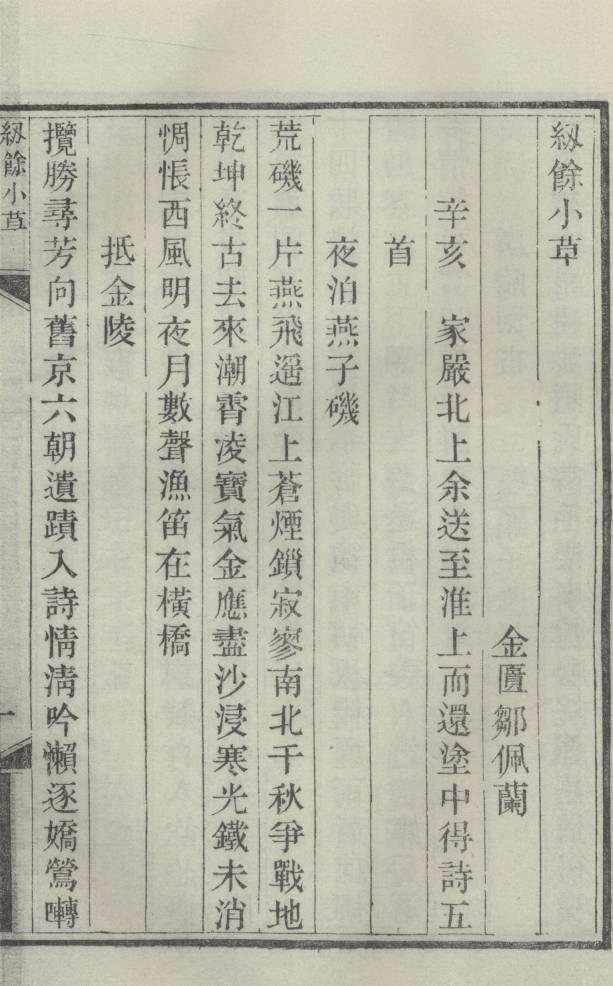 紉餘小草
金匱鄒佩蘭
辛亥　家嚴北上余送至淮上而還塗中得詩五
首
夜泊燕子磯
荒磯一片燕飛遥江上蒼煙鎖寂寥南北千秋爭戰地
乾坤終古去來潮霄凌寶氣金應盡沙浸寒光鐵未消
惆悵西風明夜月數聲漁笛在橫橋
抵金陵
攬勝尋芳向舊京六朝遺蹟入詩情淸吟懶逐嬌鶯囀
紉餘小草
一